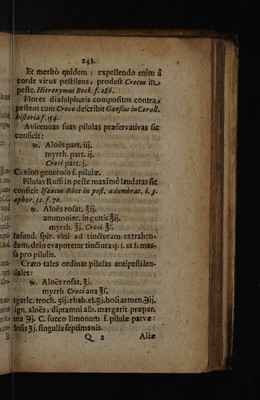 243.
Et meritò quidem: expellendo enim à
corde virus pestilens, prodest Crocus in
peste. Hieronymus Bock. f. 286.
Flores diasulphuris compositos contra
pestem cum Croco describit Gansius in Corall.
historia f. 154.
Avicennas suas pilulas præservativas sic
conficit:
℞. Aloës part. iij.
myrrh. part. ij.
Croci part. j.
C. vino generoso f. pilulæ.
Pilulas Ruffi in peste maximè laudatas sic
conficit Isaacus in pest. adumbrat. l. 3.
aphor. 52. f. 70.
℞. Aloës rosat. ℥ij.
ammoniac. in guttis ℥ij.
myrrh. ℥j. Croci ℥ß.
Infund. spir. vini ad tincturam extrahen-
dam, dein evaporetur tinctura q. s. ut s. mas-
sa pro pilulis.
Crato tales ordinat pilulas antipestilen-
tiales:
℞. Aloës rosat. ℥j.
myrrh. Croci ana ℥ß.
agaric. troch. ʒij. rhab. el. ʒj. boli armen. ℈ij.
lign. aloës, diptamni alb. margarit. præpar.
ana ℈j. C. succo limonum f. pilulæ parvæ:
dosis ʒj. singulis septimanis.
Q 2 Aliæ